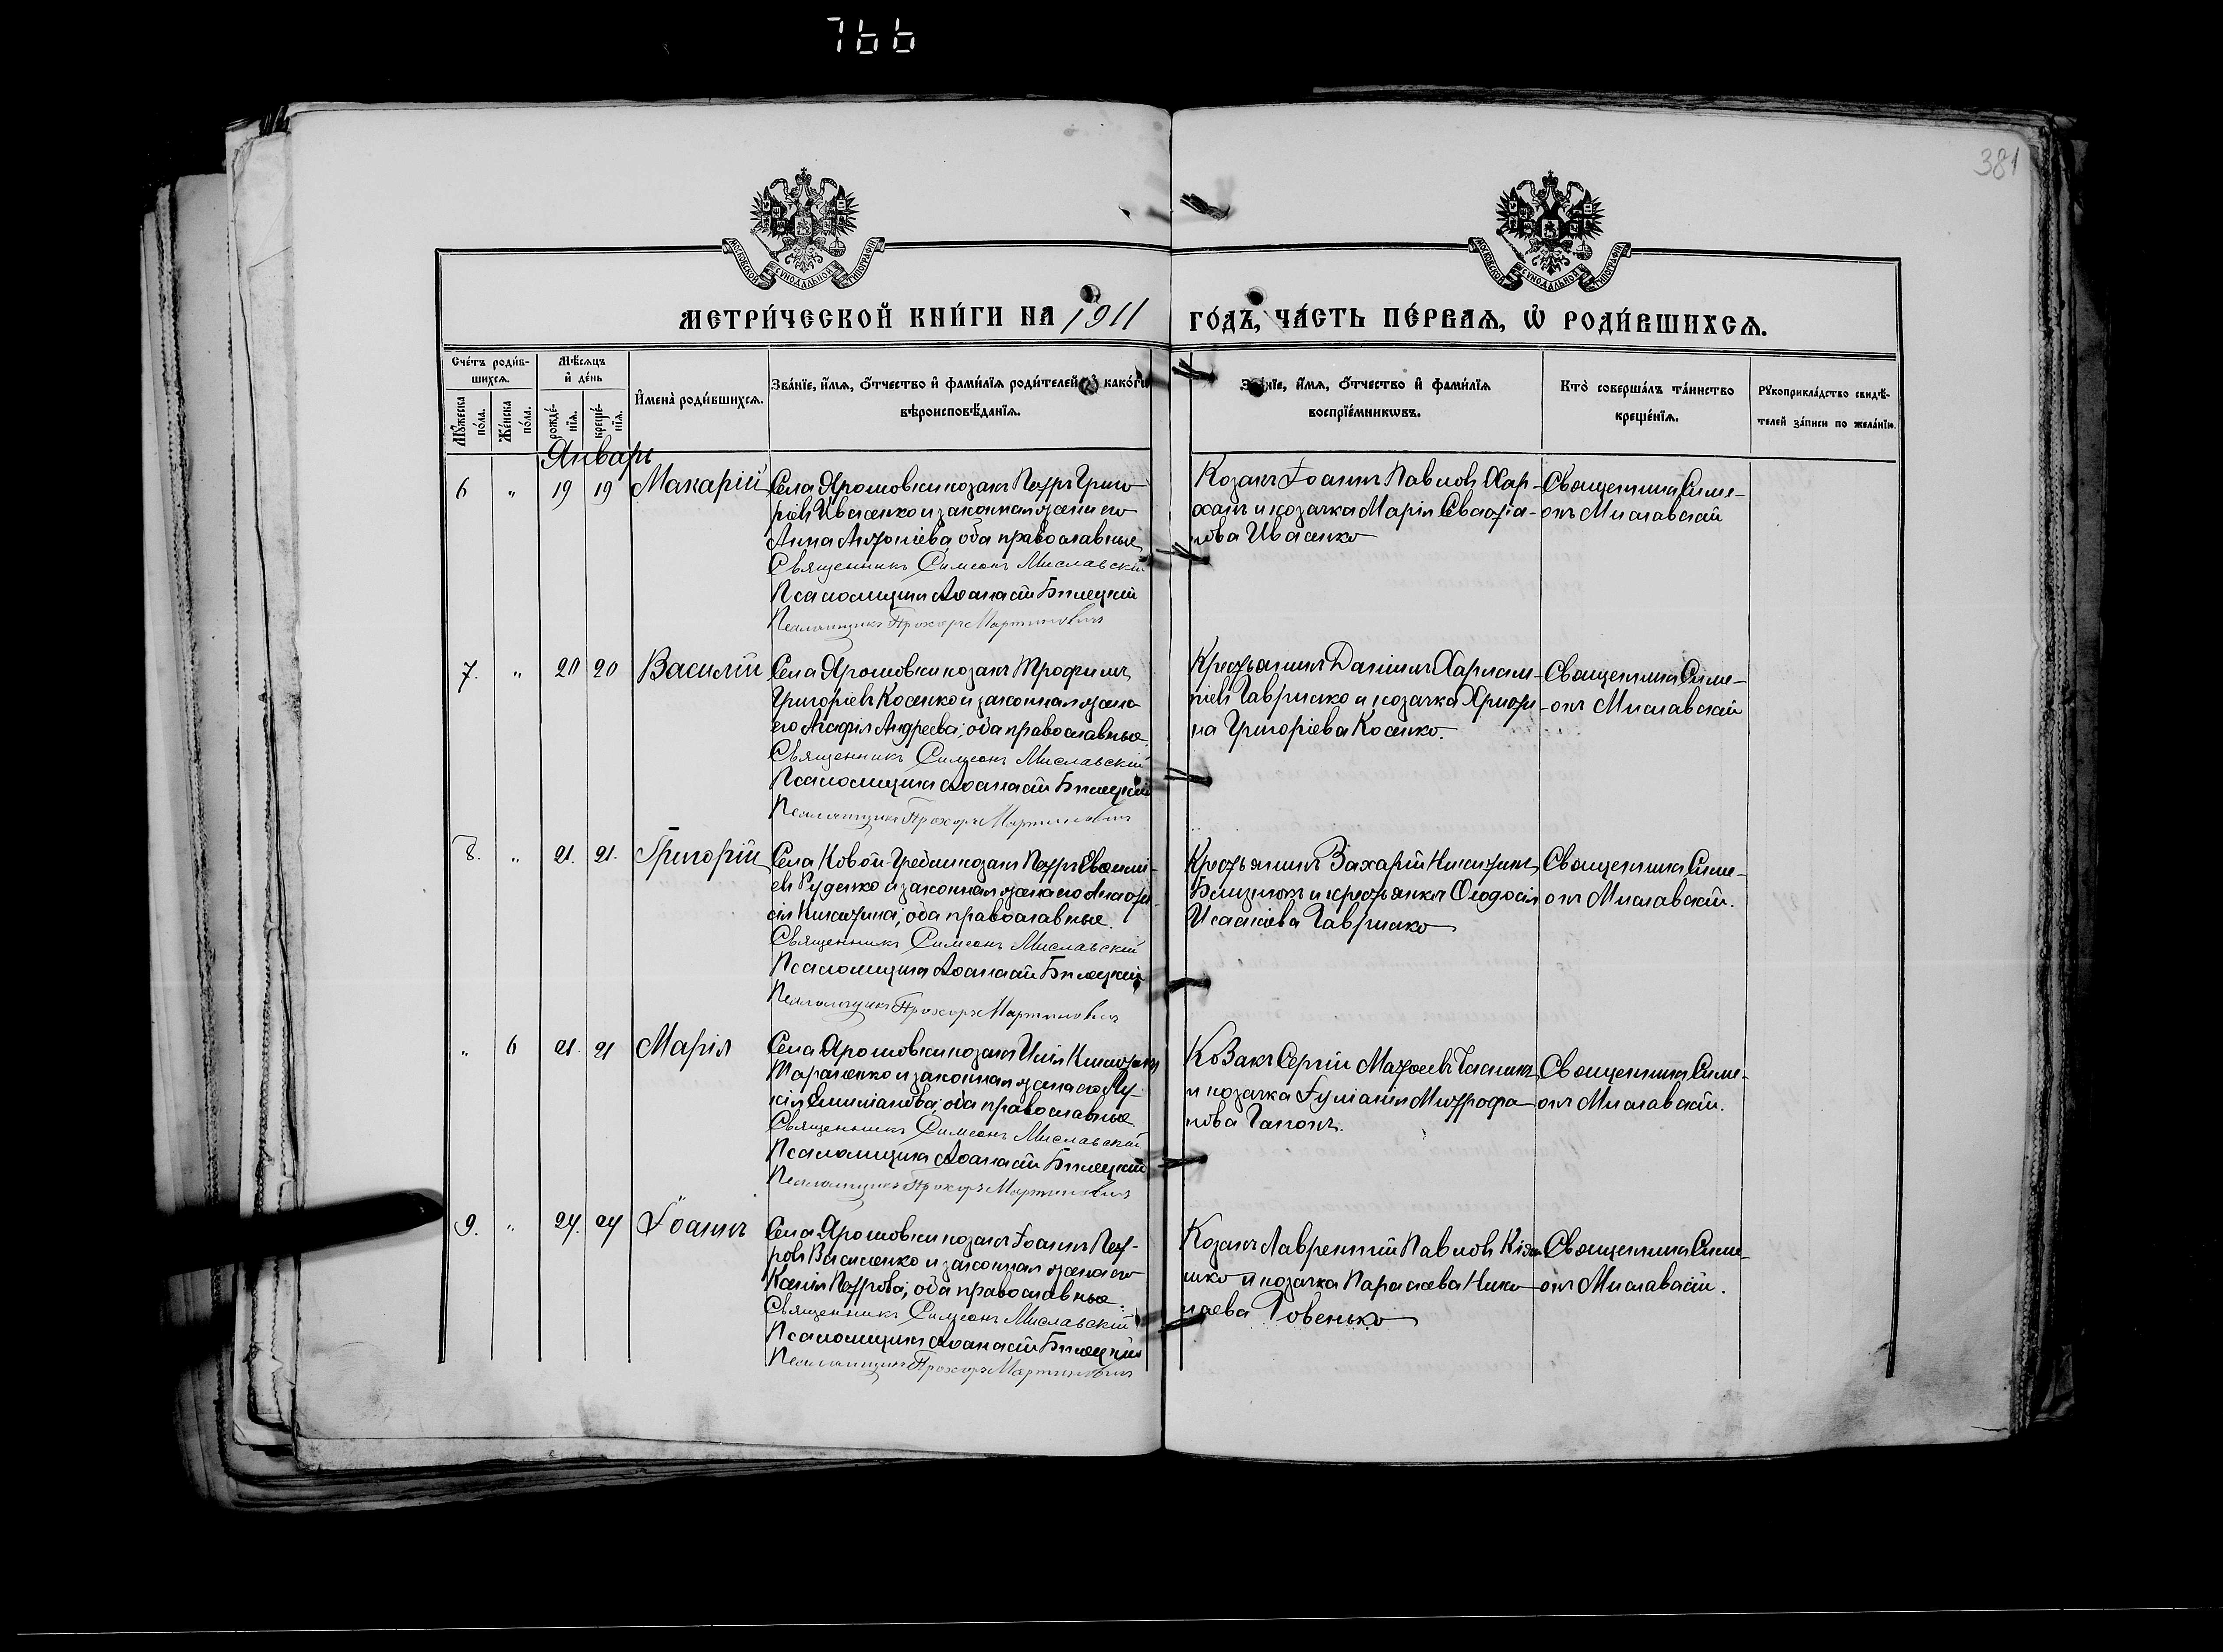 766
381
МОСКОВСКОЙ СУНОДАЛЬНОЙ ТИПОГРАФІИ
МОСКОВСКОЙ СУНОДАЛЬНОЙ ТИПОГРАФІИ
МЕТРИ́ЧЕСКОЙ КНИ́ГИ НА 1911
ГО́ДЪ, ЧА́СТЬ ПЕ́РВАѦ, Ѡ҆ РОДИ́ВШИХСѦ.
Сче́тъ роди́в-
шихсѧ.
Мѣ́сѧцъ
и҆ де́нь
Мꙋ́жеска по́ла.
Же́нска по́ла.
рожде́-
нїѧ.
креще́-
нїѧ.
И҆мена̀ роди́вшихсѧ.
Зва́нїе, и҆́мѧ, ѻ҆́тчество и҆ фами́лїѧ роди́телей, и҆ како́гѡ
вѣроисповѣ́данїѧ.
Зва́нїе, и҆́мѧ, ѻ҆́тчество и҆ фами́лїѧ
воспрїе́мникѡвъ.
Кто̀ соверша́лъ та́инство
креще́нїѧ.
Рꙋкоприкла́дство свидѣ́-
телей за́писи по жела́нїю.
Январь
6 " 19 19 Макарій
Села Ярошовки козакъ Петръ Григо-
ріевъ Ивасенко и законная жена его
Анна Антоніева, оба православные
Священникъ Симеонъ Миславскій
Псаломщикъ Аѳанасій Билецкій
Псаломщикъ Прохоръ Мартиновичъ
Козакъ Іоаннъ Павловъ Хар-
и козачка Марія Севастіа-
нова Ивасенко
Священникъ Симе-
онъ Миславскій
7. " 20 20 Василій
Села Ярошовки козакъ Трофимъ
Григоріевъ Косенко и законная жена
его Агафія Андреева; оба православные.
Священникъ Симеонъ Миславскій
Псаломщикъ Аѳанасій Билецкій
Псаломщикъ Прохоръ Мартиновичъ
Крестьянинъ Даніилъ Харлам-
піевъ Гаврилко и козачка Христи-
на Григоріева Косенко.
Священникъ Симе-
онъ Миславскій
8. " 21. 21. Григорій
Села козакъ Петръ Евѳимі-
евъ Руденко и законная жена его Анаста-
сія Никитина; оба православные.
Священникъ Симеонъ Миславскій
Псаломщикъ Аѳанасій Билецкій
Псаломщикъ Прохоръ Мартиновичъ
Крестьянинъ Захарій Никитинъ
Близнюкъ и крестьянка Ѳеодосія
Исаакіева Гаврилко
Священникъ Симе-
онъ Миславскій.
" 6 21. 21 Марія
Села Ярошовки козакъ Илія Никитинъ
Тараненко и законная жена его Лу-
кія Емиліанова; оба православные.
Священникъ Симеонъ Миславскій
Псаломщикъ Аѳанасій Билецкій
Псаломщикъ Прохоръ Мартиновичъ
Козакъ Сергій Матѳеевъ
и козачка Іуліанія Митрофа-
нова Гапонъ.
Священникъ Симе-
онъ Миславскій.
9. " 24. 24 Іоаннъ
Села Ярошовки козакъ Іоаннъ Пет-
ровъ Василенко и законная жена его
Ксенія Петрова; оба православные.
Священникъ Симеонъ Миславскій
Псаломщикъ Аѳанасій Билецкій
Псаломщикъ Прохоръ Мартиновичъ
Козакъ Лаврентій Павловъ
и козачка Параскева Нико-
лаева Ровенько
Священникъ Симе-
онъ Миславскій.